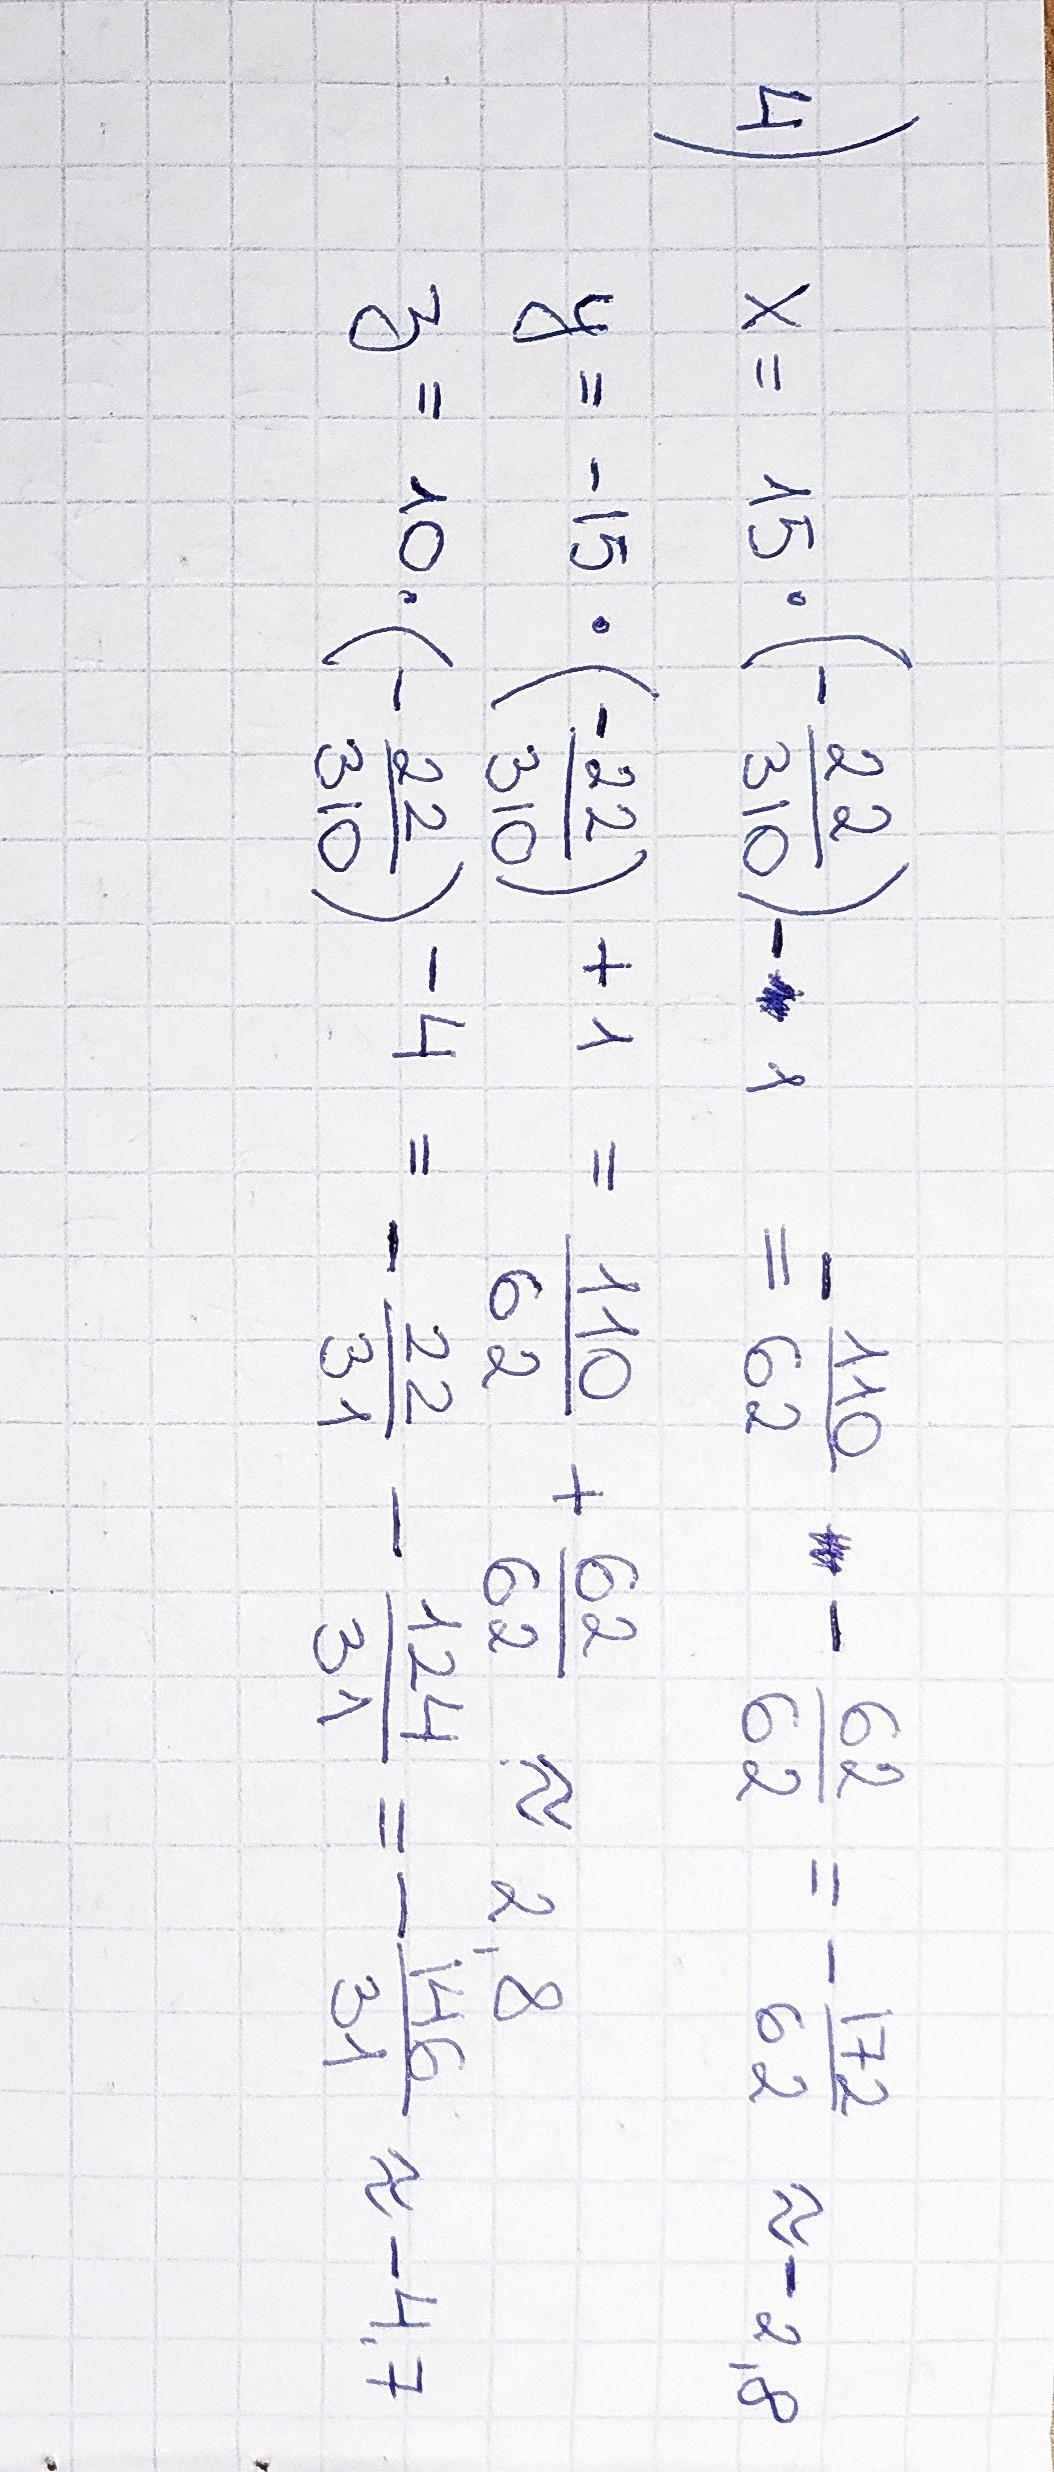 4) x = 15 · (- 22/310) - 1 = - 110/62 - 62/62 = - 172/62 ≈ - 2,8
y = -15 · (- 22/310) + 1 = 110/62 + 62/62 ≈ 2,8
z = 10 · (- 22/310) - 4 = - 22/31 - 124/31 = - 146/31 ≈ - 4,7